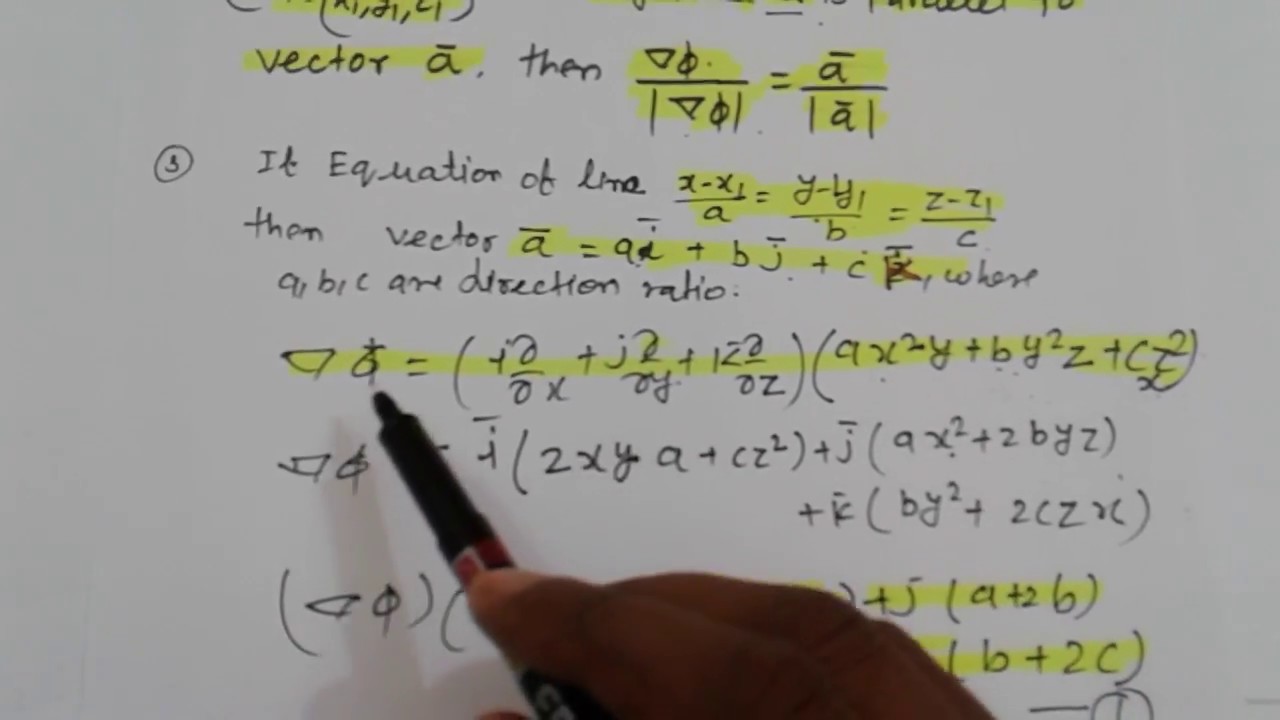 (x₁, y₁, z₁)
vector ā. then ∇ϕ/|∇ϕ| = ā/|ā|
③ If Equation of line (x-x₁)/a = (y-y₁)/b = (z-z₁)/c
then vector ā = a ī + b j̄ + c k̄, where
a, b, c are direction ratio.
∇ϕ = (ī ∂/∂x + j̄ ∂/∂y + k̄ ∂/∂z)(ax²y + by²z + cz²x)
∇ϕ = ī(2xy a + cz²) + j̄(ax² + 2byz)
+ k̄(by² + 2czx)
(∇ϕ)( ) + j̄(a+2b)
(b+2c)
— ①